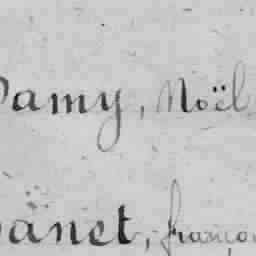 Damy, Noël
anet, françoi